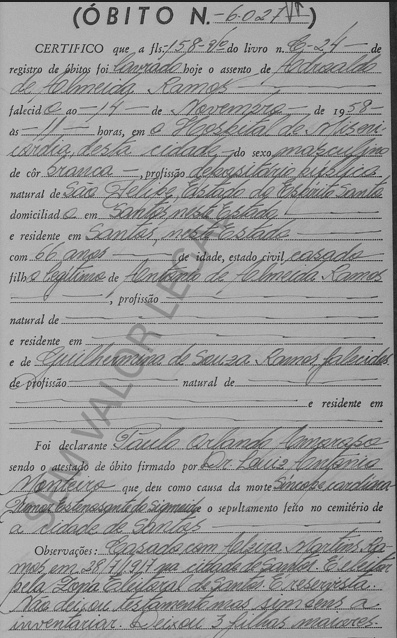 (ÓBITO N. 6.027)
CERTIFICO que a fls. 158-vº do livro n. C-24 de
registro de óbitos foi lavrado hoje o assento de
de Almeida Ramos
falecido ao 14 de Novembro de 1958
às 11 horas, em o Hospital de Miseri
cordia, desta cidade do sexo masculino
de côr branca, profissão depositario publico,
natural de São Felipe, Estado de Espirito Santo
domiciliado em Santos, neste Estado
e residente em Santos, neste Estado
com 66 anos de idade, estado civil casado
filho legitimo de Antonio de Almeida Ramos
, profissão
natural de
e residente em
e de Guilhermina de Souza Ramos, falecidos
de profissão natural de
e residente em
Foi declarante Paulo Orlando
sendo o atestado de óbito firmado por Dr. Luiz Antônio
Monteiro que deu como causa da morte Síncope cardiaca
e o sepultamento feito no cemitério de
a cidade de Santos
Observações: Casado com Martins Ra
mos em 28/4/1917 na cidade de Santos. E eleitor
pela Zona Eleitoral de Santos. E reservista.
Não deixou testamento mas sim bens a
inventariar. Deixou 3 filhas maiores.
SEM VALOR LEGAL